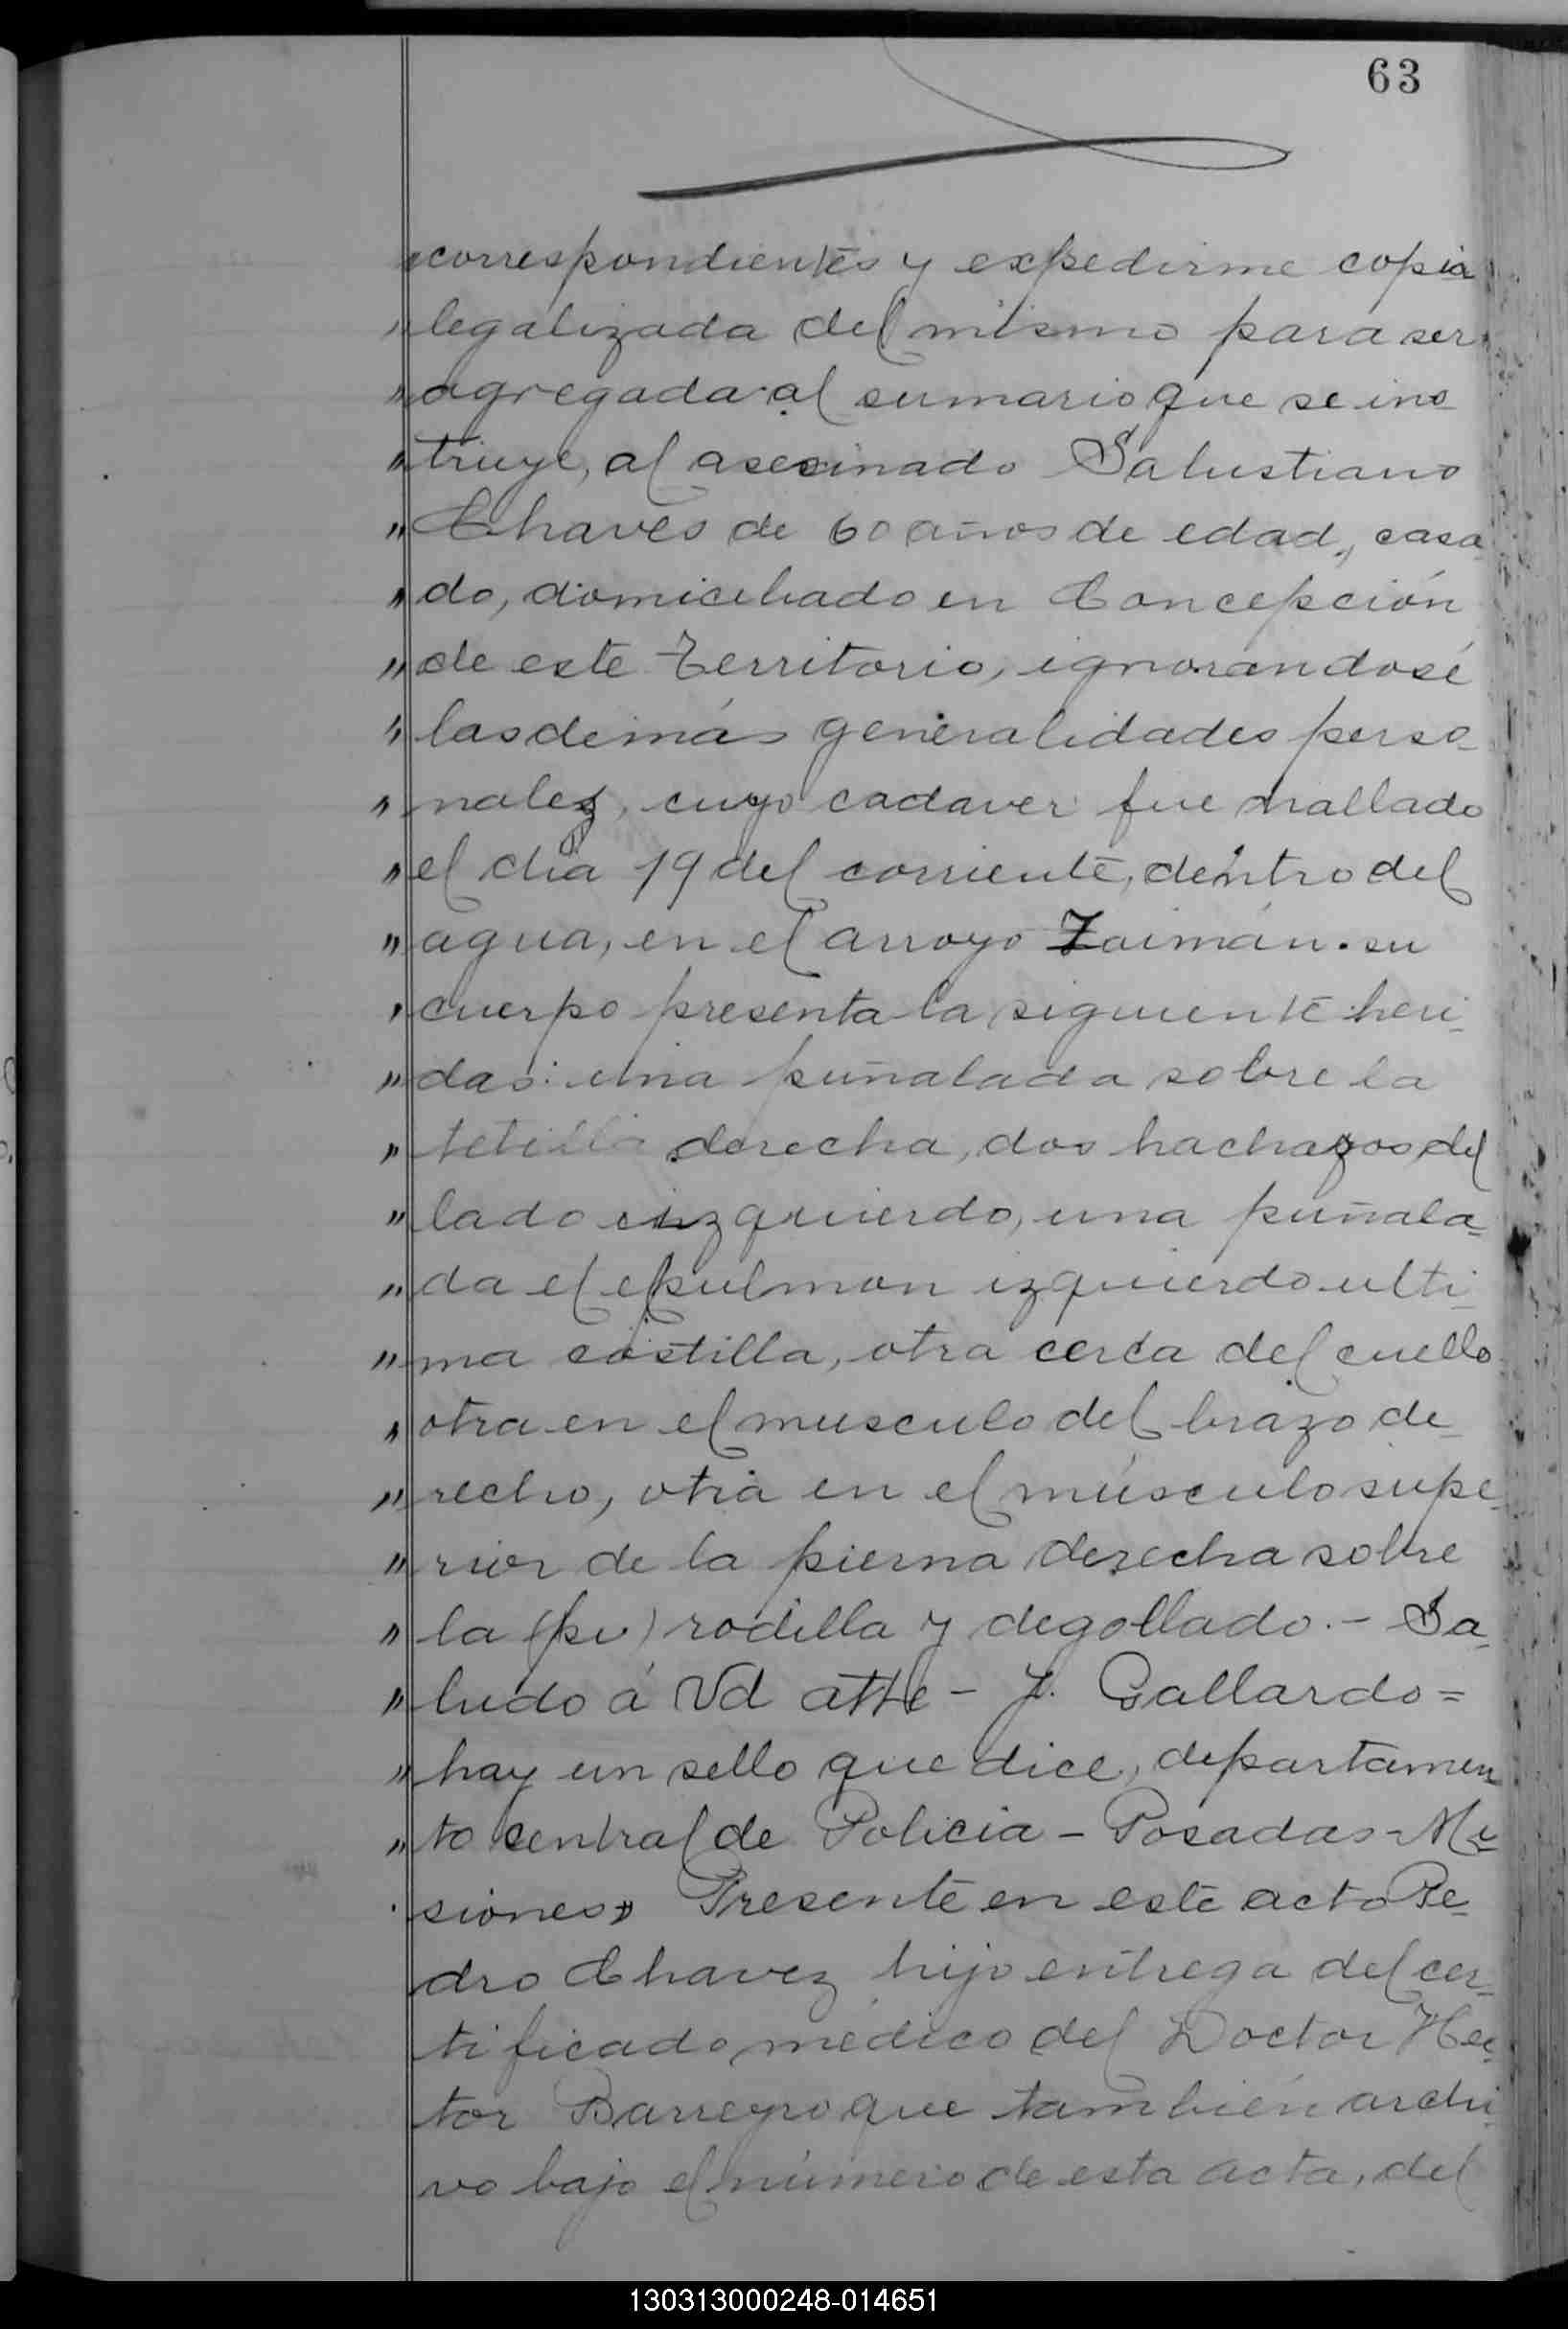 63
"correspondientes y expedirme copia
"legalizada del mismo para ser
"agregada al sumario que se ins-
"truye, al asesinado Salustiano
"Chaves de 60 años de edad, casa-
"do, domiciliado en Concepción
"de este Territorio, ignorandosé
"las demás generalidades perso-
"nales, cuyo cadaver fue hallado
"el dia 19 del corriente, dentro del
"agua, en el arroyo Zaimán. su
"cuerpo presenta la siguiente heri-
"das: una puñalada sobre la
"tetilla derecha, dos hachazos del
"lado izquierdo, una puñala-
"da el pulmon izquierdo ulti-
"ma costilla, otra cerca del cuello
"otra en el musculo del brazo de-
"recho, otra en el músculo supe-
"rior de la pierna derecha sobre
"la (pi) rodilla y degollado.- Sa-
"ludo á Vd atte - J. Gallardo =
"hay un sello que dice, departamen
"to central de Policia - Posadas - Mi-
siones" Presente en este acto Pe-
dro Chavez hijo entrega del cer-
tificado médico del Doctor Hec-
tor Barreyro que también archi-
vo bajo el número de esta acta, del
130313000248-014651